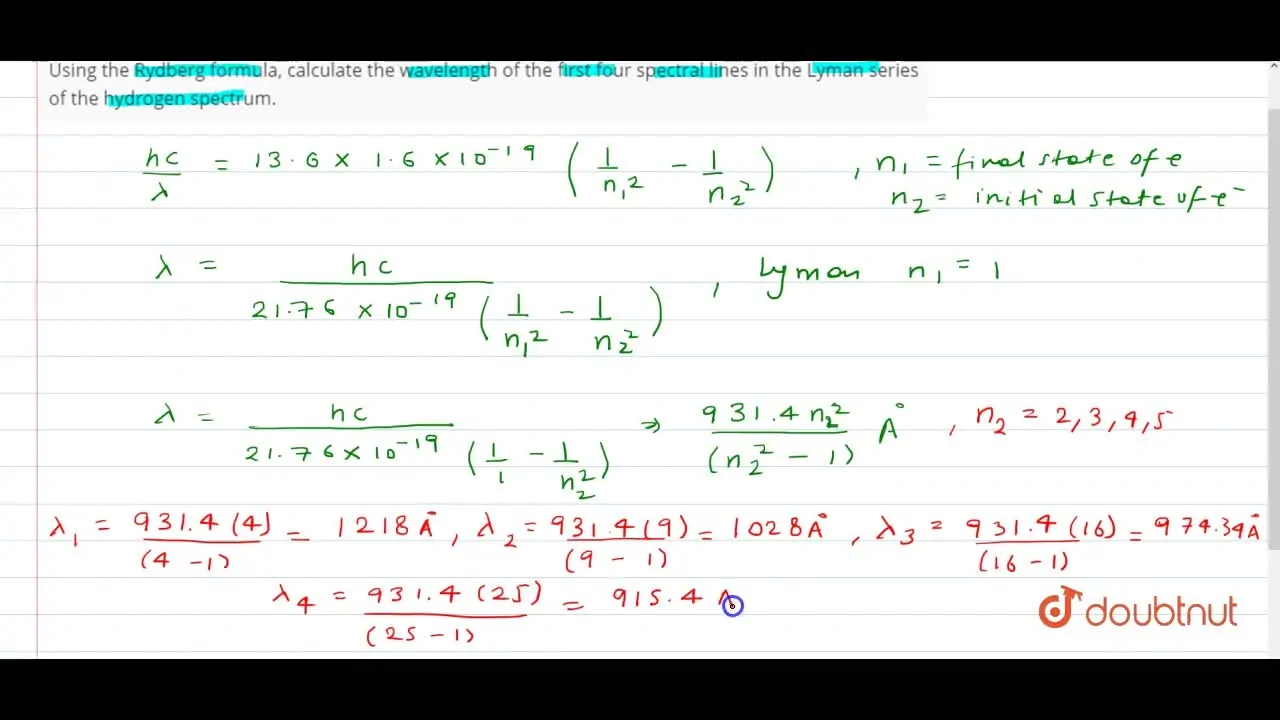 Using the Rydberg formula, calculate the wavelength of the first four spectral lines in the Lyman series
of the hydrogen spectrum.
hc/λ = 13.6 × 1.6 × 10⁻¹⁹ (1/n₁² − 1/n₂²) , n₁ = final state of e
n₂ = initial state of e⁻
λ = hc / 21.76 × 10⁻¹⁹ (1/n₁² − 1/n₂²) , Lyman n₁ = 1
λ = hc / 21.76 × 10⁻¹⁹ (1/1 − 1/n₂²) ⇒ 931.4 n₂² / (n₂² − 1) Å , n₂ = 2, 3, 4, 5
λ₁ = 931.4 (4) / (4 − 1) = 1218 Å , λ₂ = 931.4 (9) / (9 − 1) = 1028 Å , λ₃ = 931.4 (16) / (16 − 1) = 974.34 Å
λ₄ = 931.4 (25) / (25 − 1) = 915.4 A
doubtnut